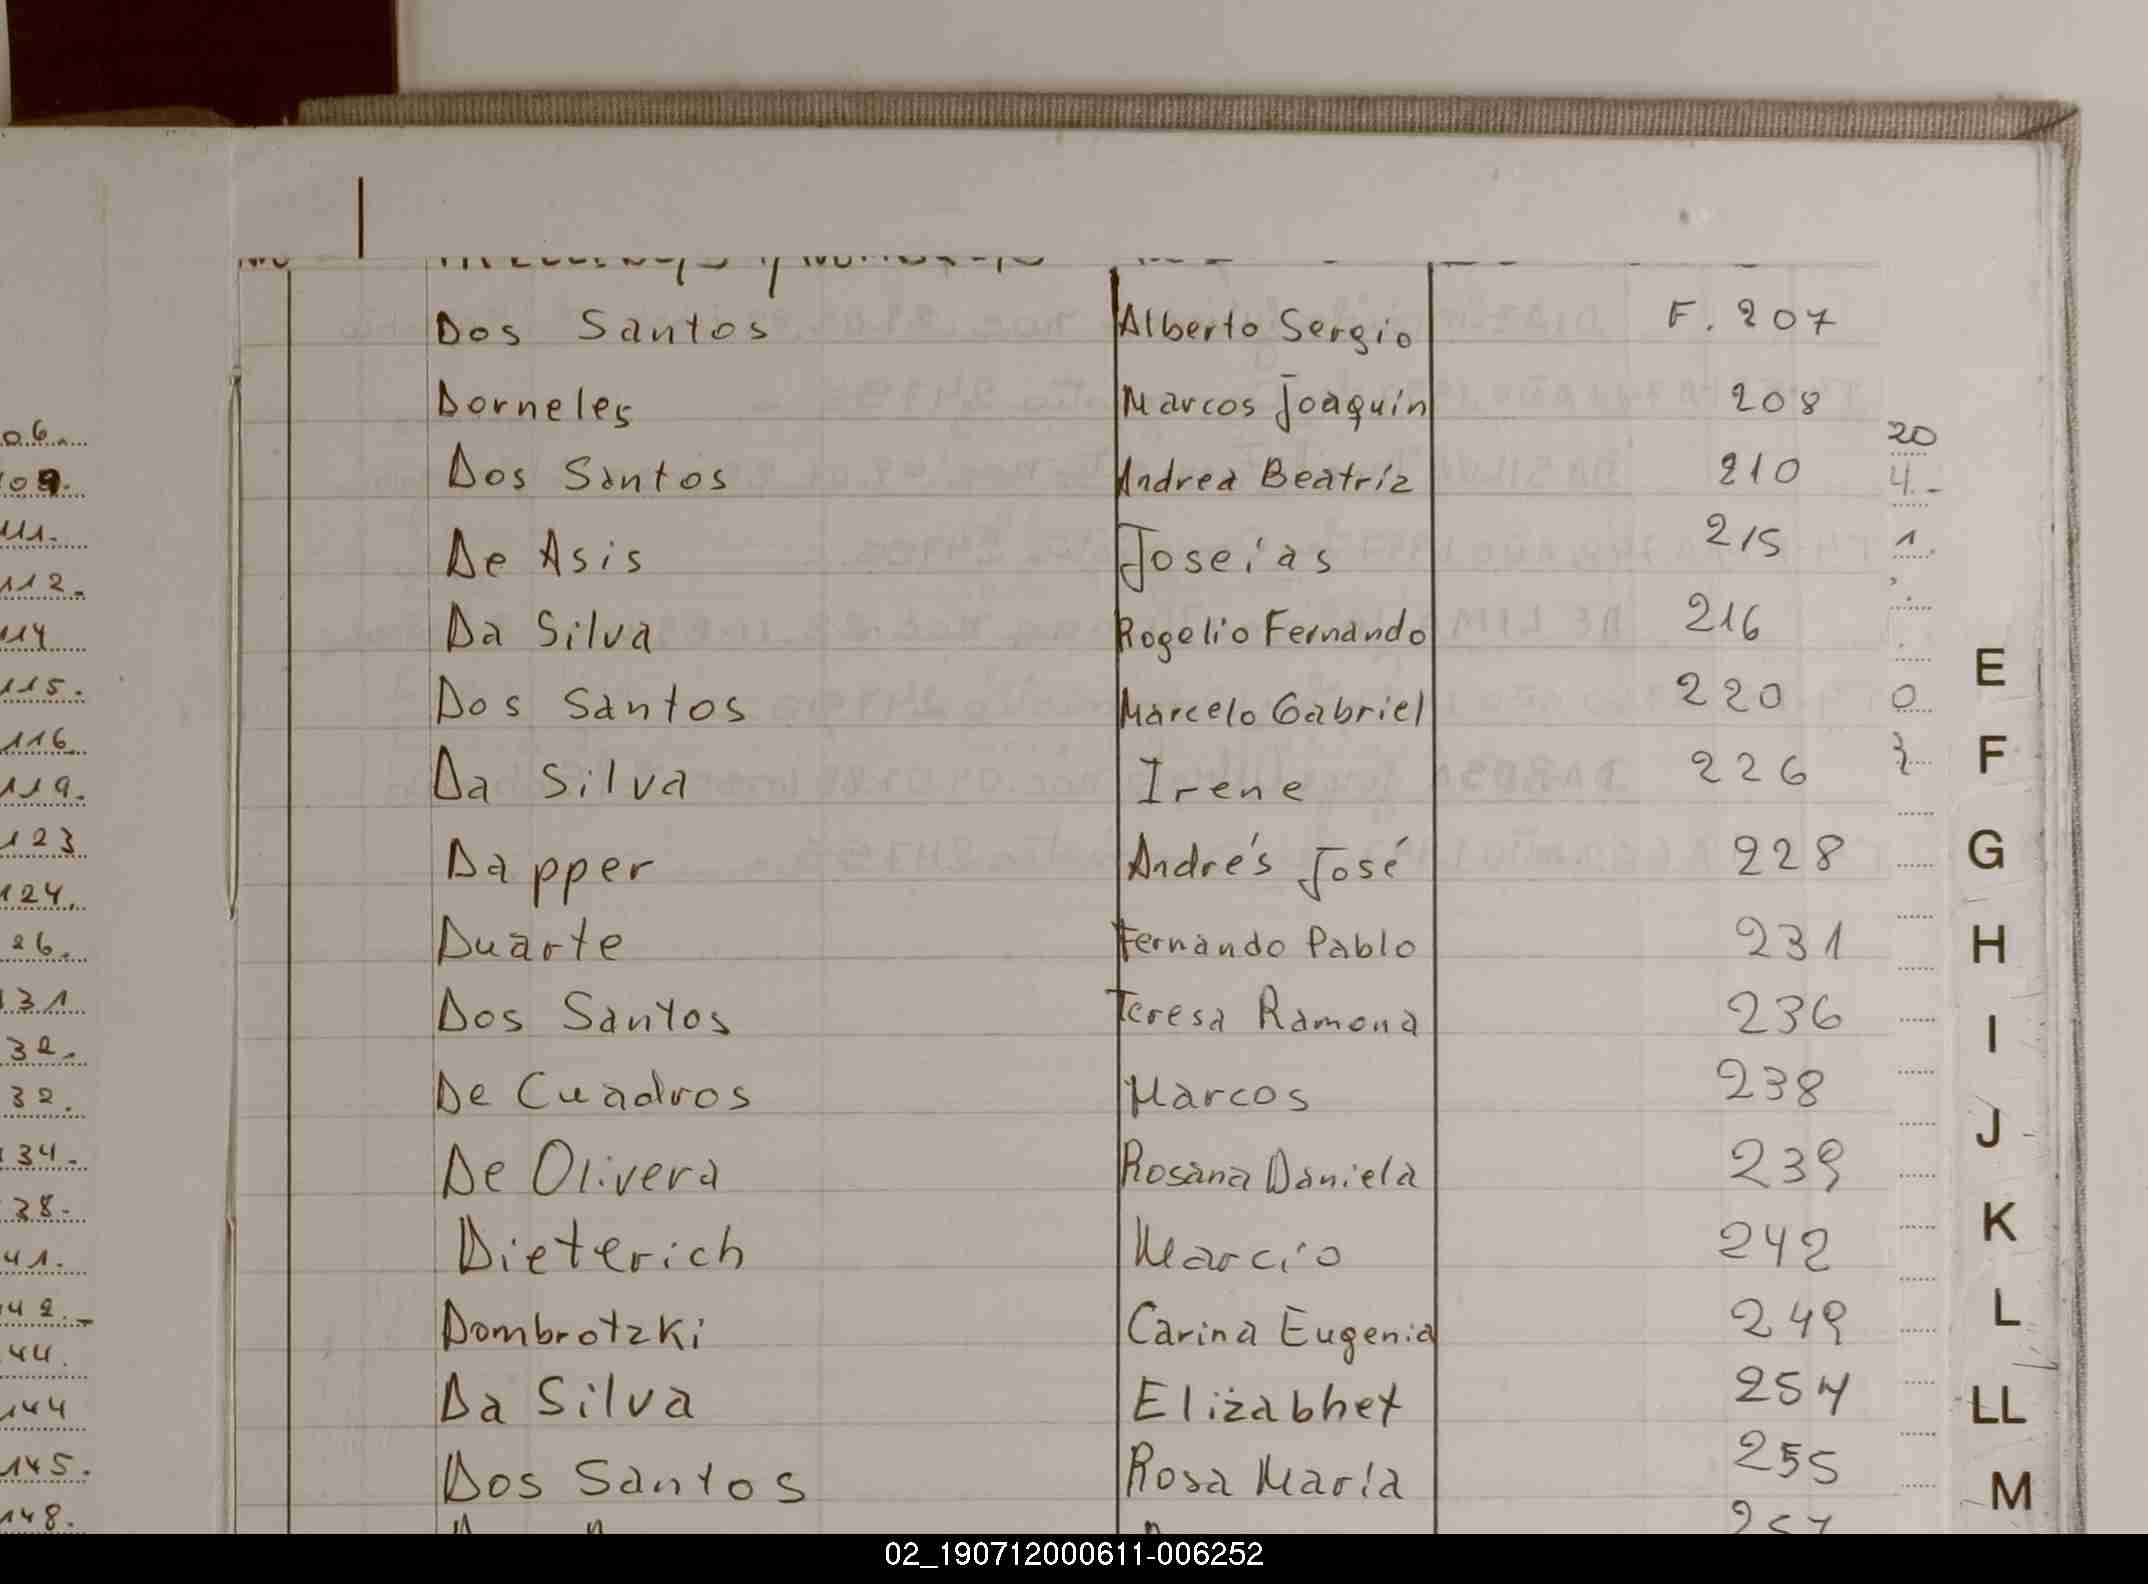 Dos Santos Alberto Sergio F. 207
Dorneles Marcos Joaquín 208
Dos Santos Andrea Beatríz 210
De Asis Joseías 215
Da Silva Rogelio Fernando 216
Dos Santos Marcelo Gabriel 220
Da Silva Irene 226
Dapper Andrés José 228
Duarte Fernando Pablo 231
Dos Santos Teresa Ramona 236
De Cuadros Marcos 238
De Olivera Rosana Daniela 239
Dieterich Marcío 242
Dombrotzki Carina Eugenia 249
Da Silva Elizabhet 254
Dos Santos Rosa María 255
06.
109.
111.
112.
114
115.
116
119.
123
124.
26.
131.
32.
32.
34.
38.
41.
42.-
44.
144
145.
148.
20
4.-
1.
0
E
F
G
H
I
J
K
L
LL
M
02_190712000611-006252